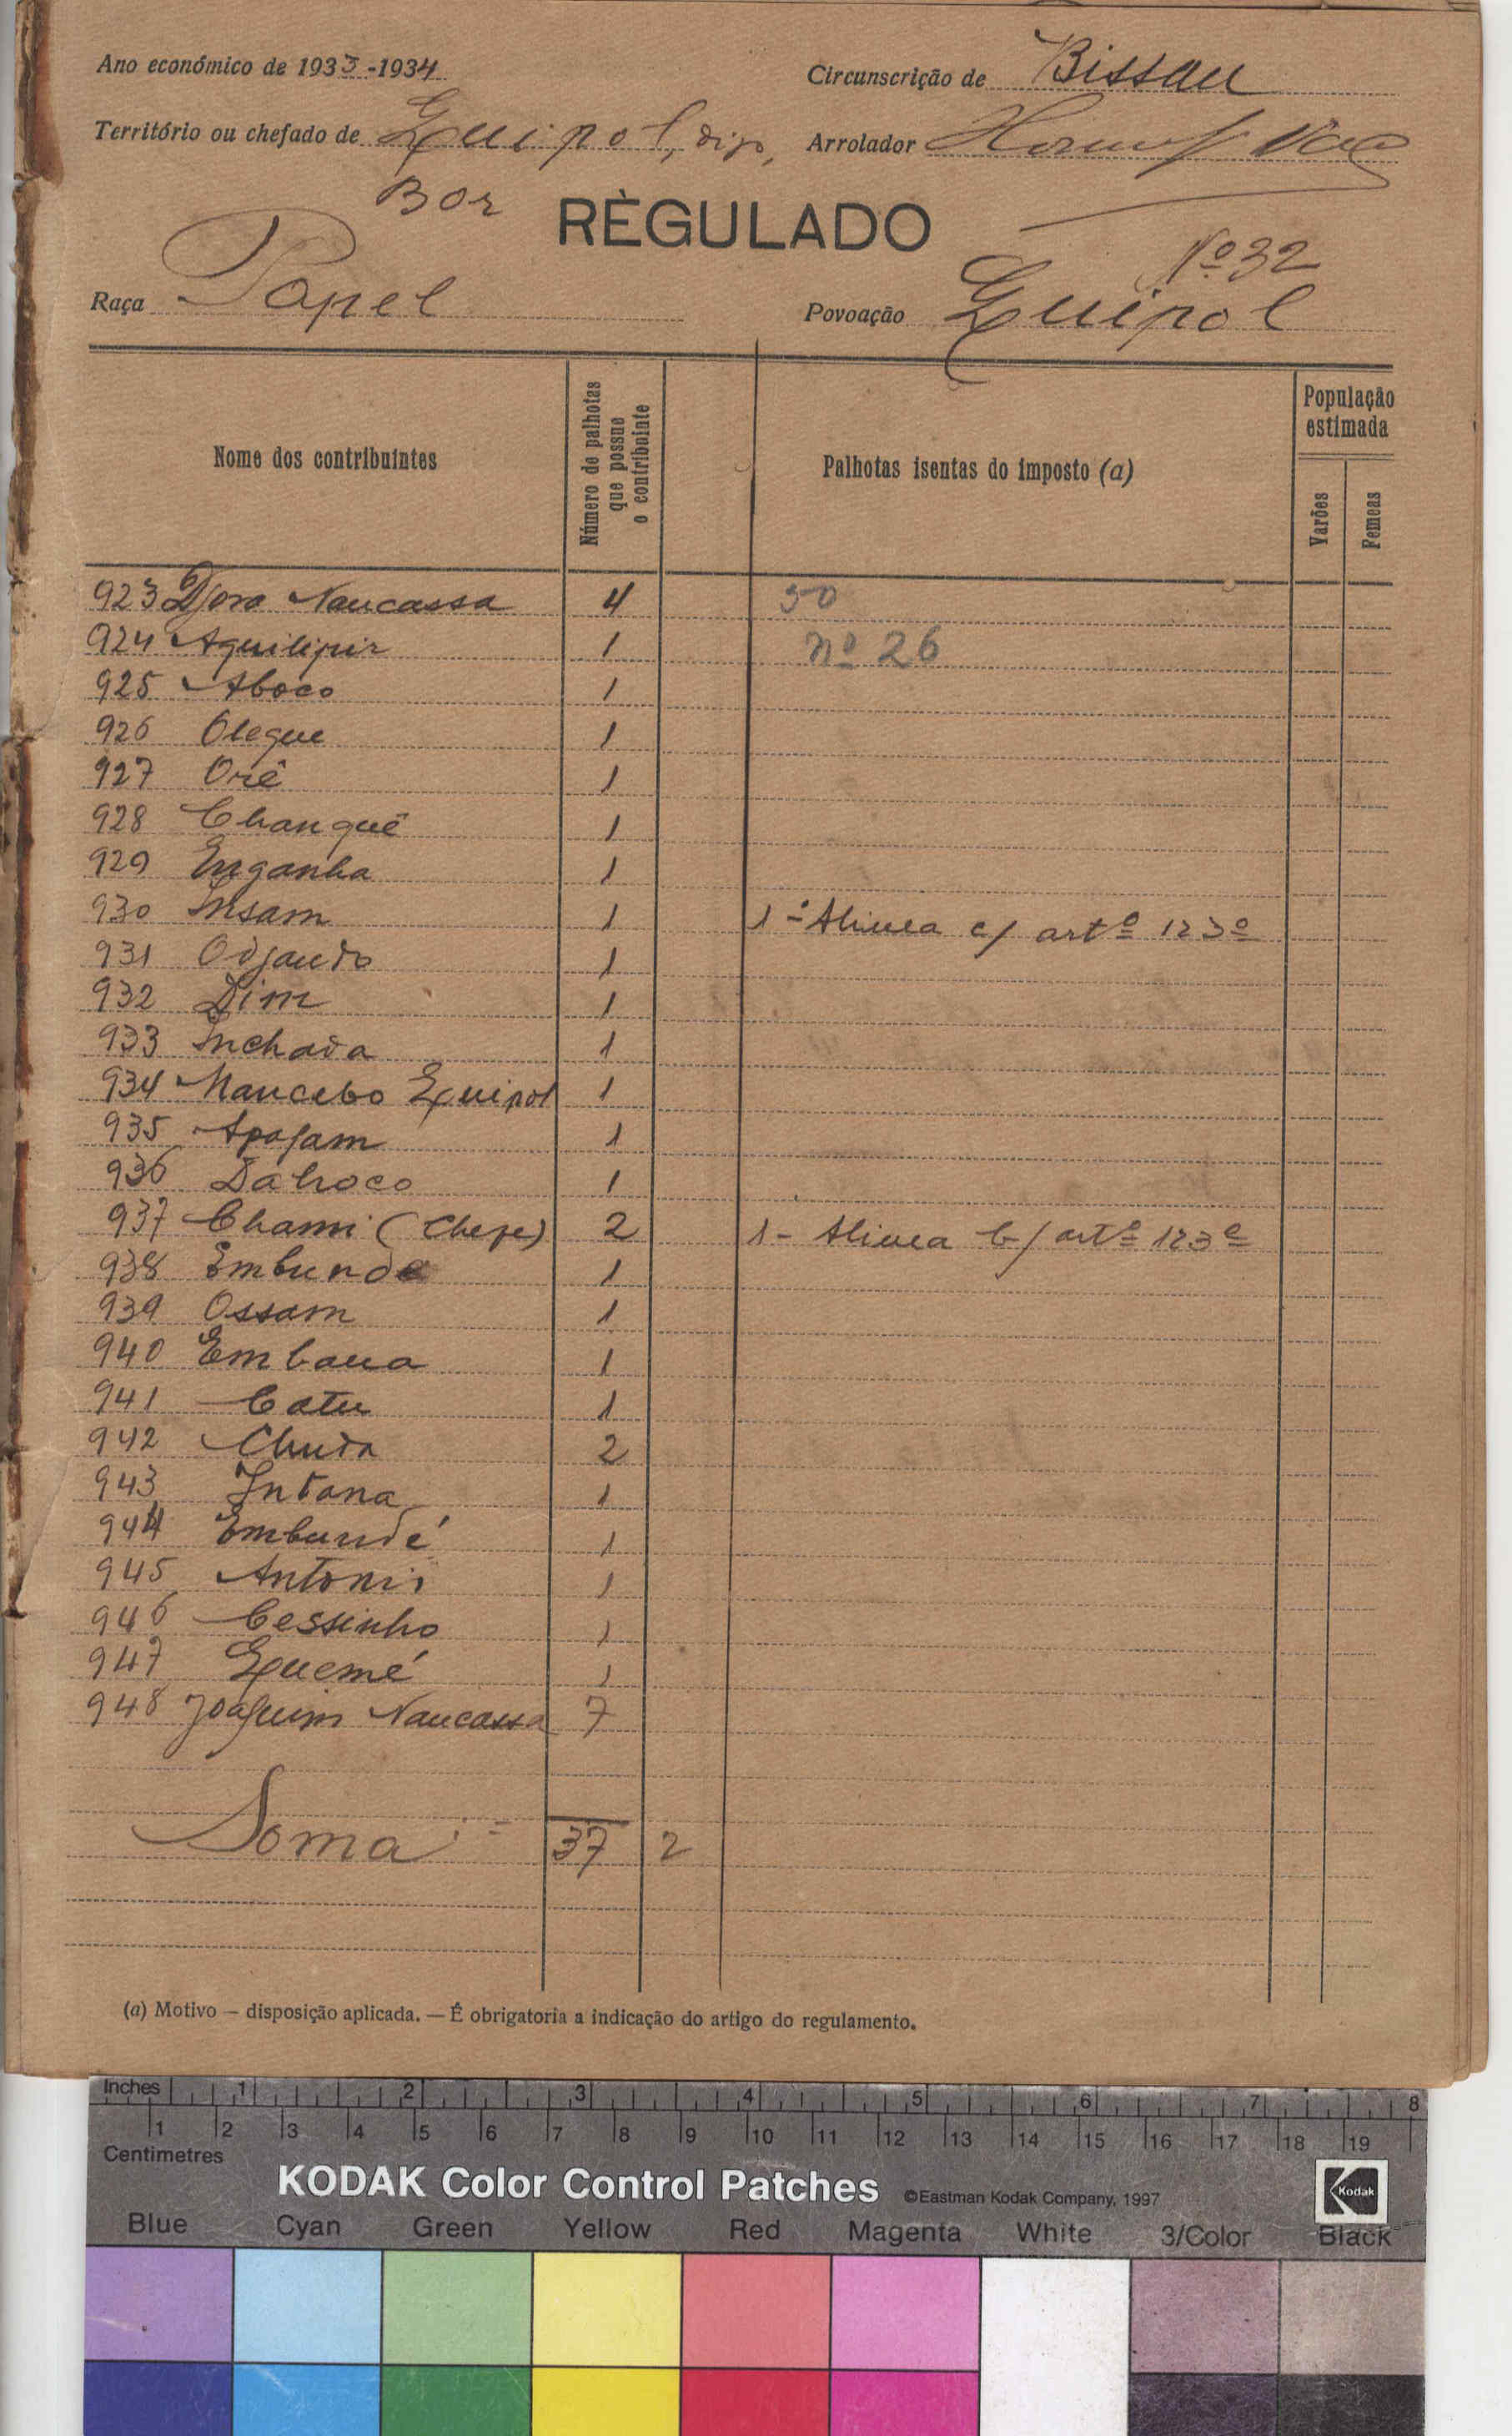 Ano económico de 1933-1934
Circunscrição de Bissau
Território ou chefado de Quipol, digo,
Arrolador
Bor
RÈGULADO
Nº 32
Raça Papel
Povoação Quipol
Nome dos contribuintes
Número de palhotas que possue o contribuinte
Palhotas isentas do imposto (a)
População estimada
Varões
Femeas
923 Djora Nancassa 4 50
924 Aquilipir 1 nº 26
925 Aboco 1
926 Olegue 1
927 Orê 1
928 Changuê 1
929 Enganha 1
930 Insam 1 1- Alinea c/ artº 123º
931 Odjando 1
932 Dim 1
933 Inchada 1
934 Mancebo Quipol 1
935 Apajam 1
936 Dahoco 1
937 Chami (Chefe) 2 1- Alinea b/ artº 123º
938 Embunde 1
939 Ossam 1
940 Embana 1
941 Catu 1
942 Chuda 2
943 Intona 1
944 Embundé 1
945 Antoni 1
946 Cessinho 1
947 Quemé 1
948 Joaquim Nancassa 7
Soma = 37 2
(a) Motivo — disposição aplicada. — É obrigatoria a indicação do artigo do regulamento.
Inches 1 2 3 4 5 6 7 8
1 2 3 4 5 6 7 8 9 10 11 12 13 14 15 16 17 18 19
Centimetres
KODAK Color Control Patches ©Eastman Kodak Company, 1997 Kodak
Blue Cyan Green Yellow Red Magenta White 3/Color Black